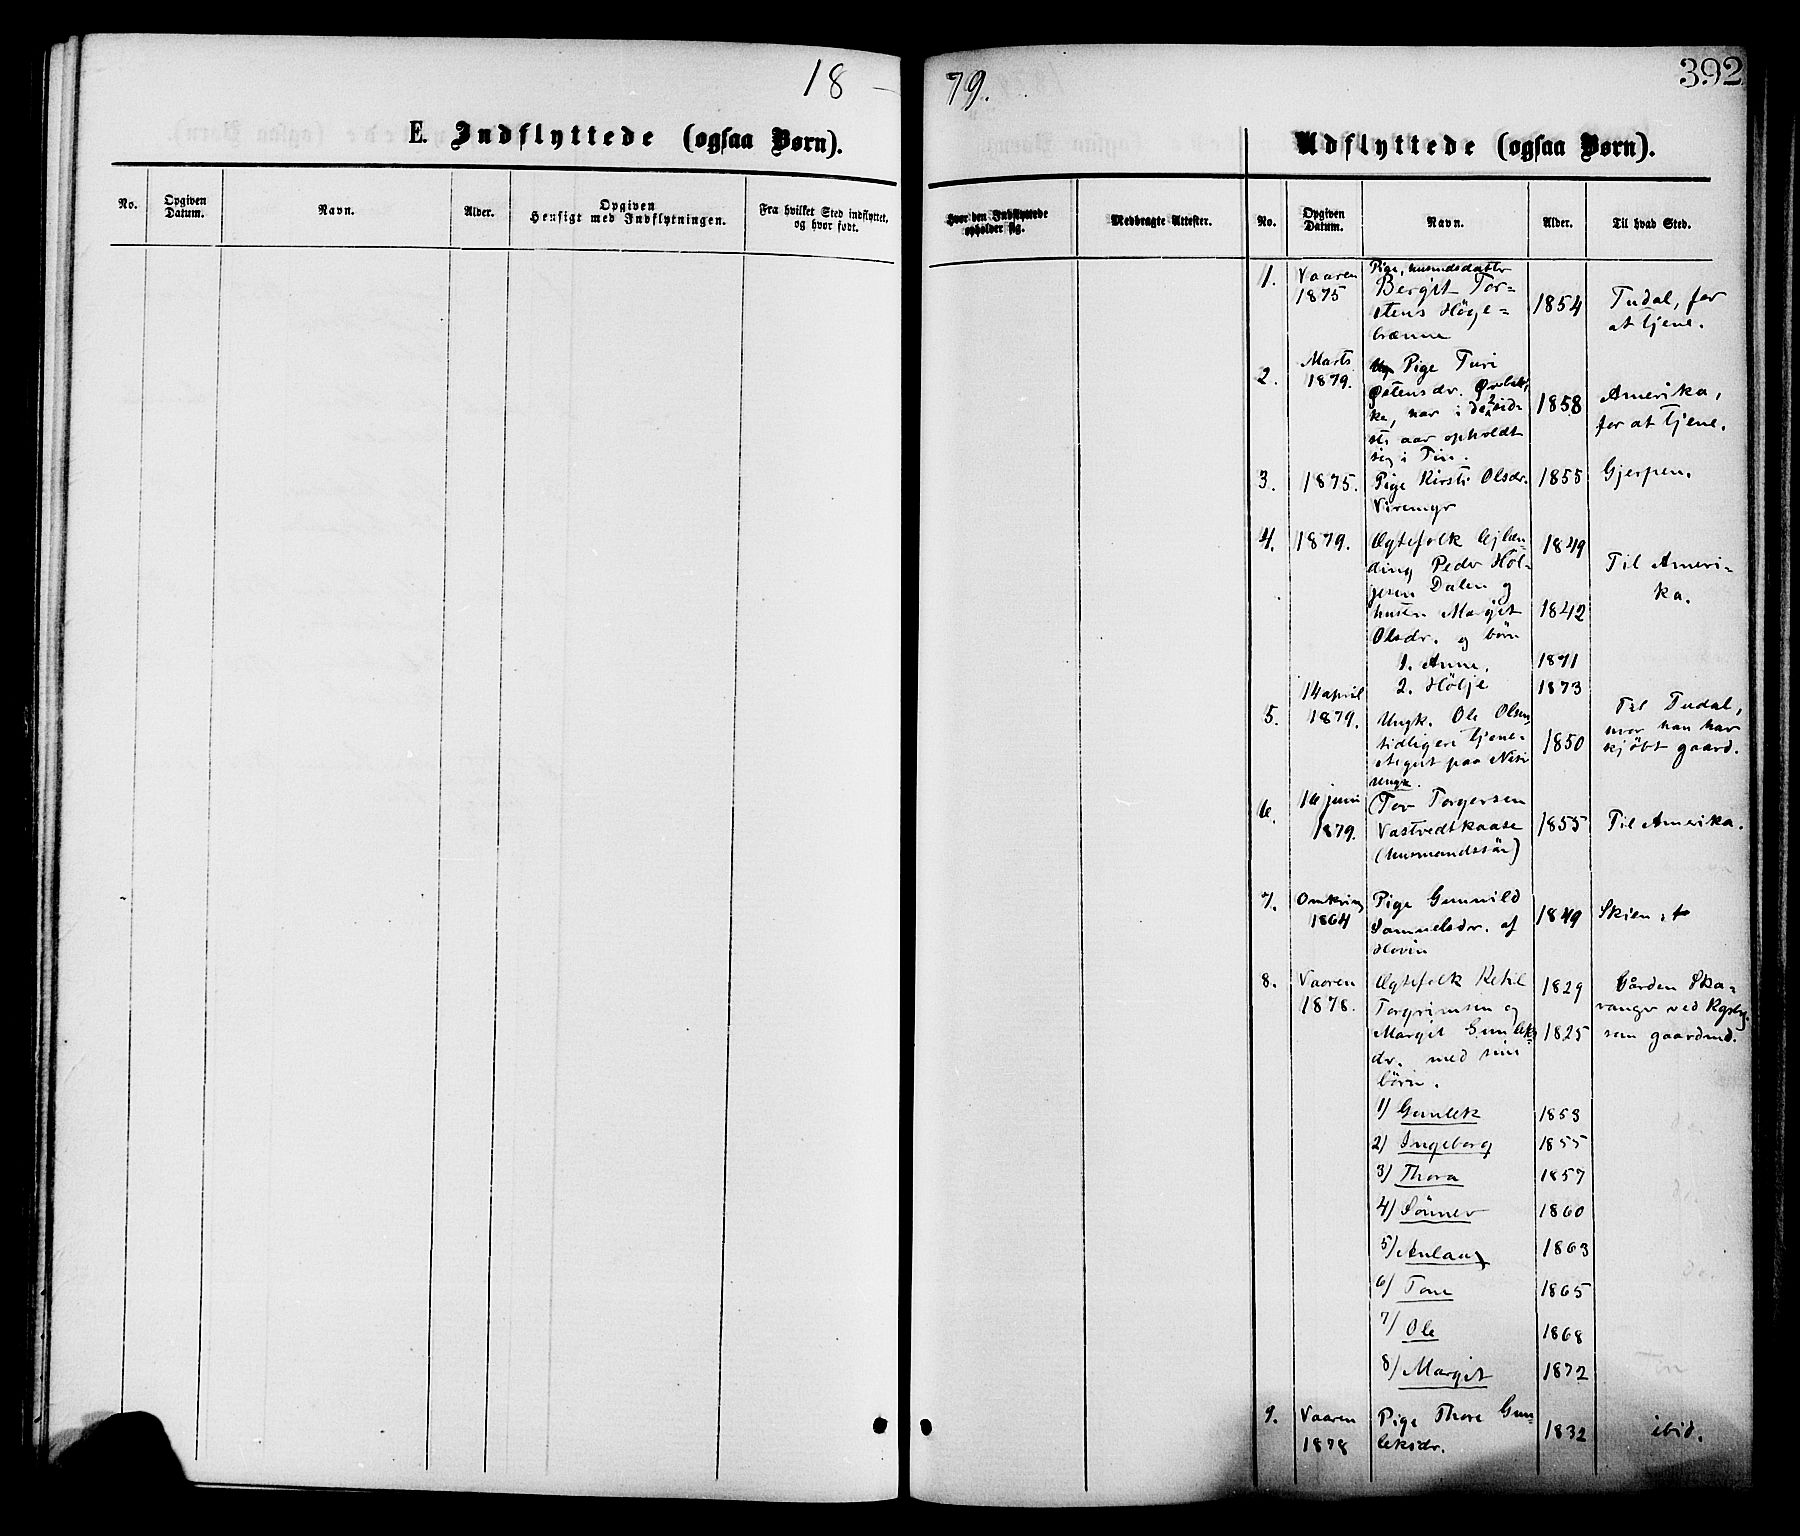 18 -
79.
392
E. Indflyttede (ogsaa Børn).
No.
Opgiven Datum.
Navn.
Alder.
Opgiven Hensigt med Indflytningen.
Fra hvilket Sted indflyttet, og hvor født.
Hvor den Indflyttede opholder sig.
Medbragte Attester.
Udflyttede (ogsaa Børn).
No.
Opgiven Datum.
Navn.
Alder.
Til hvad Sted.
1. Vaaren 1875
Pige, husmdsdatter
Bergit Tor-
stens Högje-
brænne
1854
Tudal, for
at tjene.
2. Marts 1879.
Pige Turi
Østensdr.
ke, har i de 2 sid-
ste aar opholdt
sig i Tin.
1858
Amerika,
for at tjene.
3. 1875.
Pige Kirsti Olsdr.
Viremyr
1855
Gjerpen.
4. 1879.
Ægtefolk
Peder Höl-
jesen Dalen og
hustru Margit
Olsdr. og börn
1. Anne.
2. Hölje
1849
1842
1871
1873
Til Ameri-
ka.
5. 14 april 1879.
Ungk. Ole Olsen,
tidligere tjene-
stegut paa
1850
Til Tudal,
hvor han har
kjöbt gaard.
6. 16 juni 1879.
Ungk.
Tov Torgersen
Vastvedtkaasa
(husmandssön)
1855
Til Amerika.
7. Omkring 1864
Pige Gunnild
Samuelsdr. af
Hovin
1849
Skien.
8. Vaaren 1878.
Ægtefolk Ketil
Torgrimsen og
Margit Gunleks-
dr. med sine
börn.
1829
1825
Gården Ska-
vanger ved Kgsbg.
som gaardmd.
1) Gunlek 1853
2) Ingeborg 1855
3) Thora 1857
4) Sönnev 1860
5) Anlaug 1863
6) Tone 1865
7) Ole 1868
8) Margit 1872
9. Vaaren 1878
Pige Thore Gun-
leksdr.
1832
ibid.